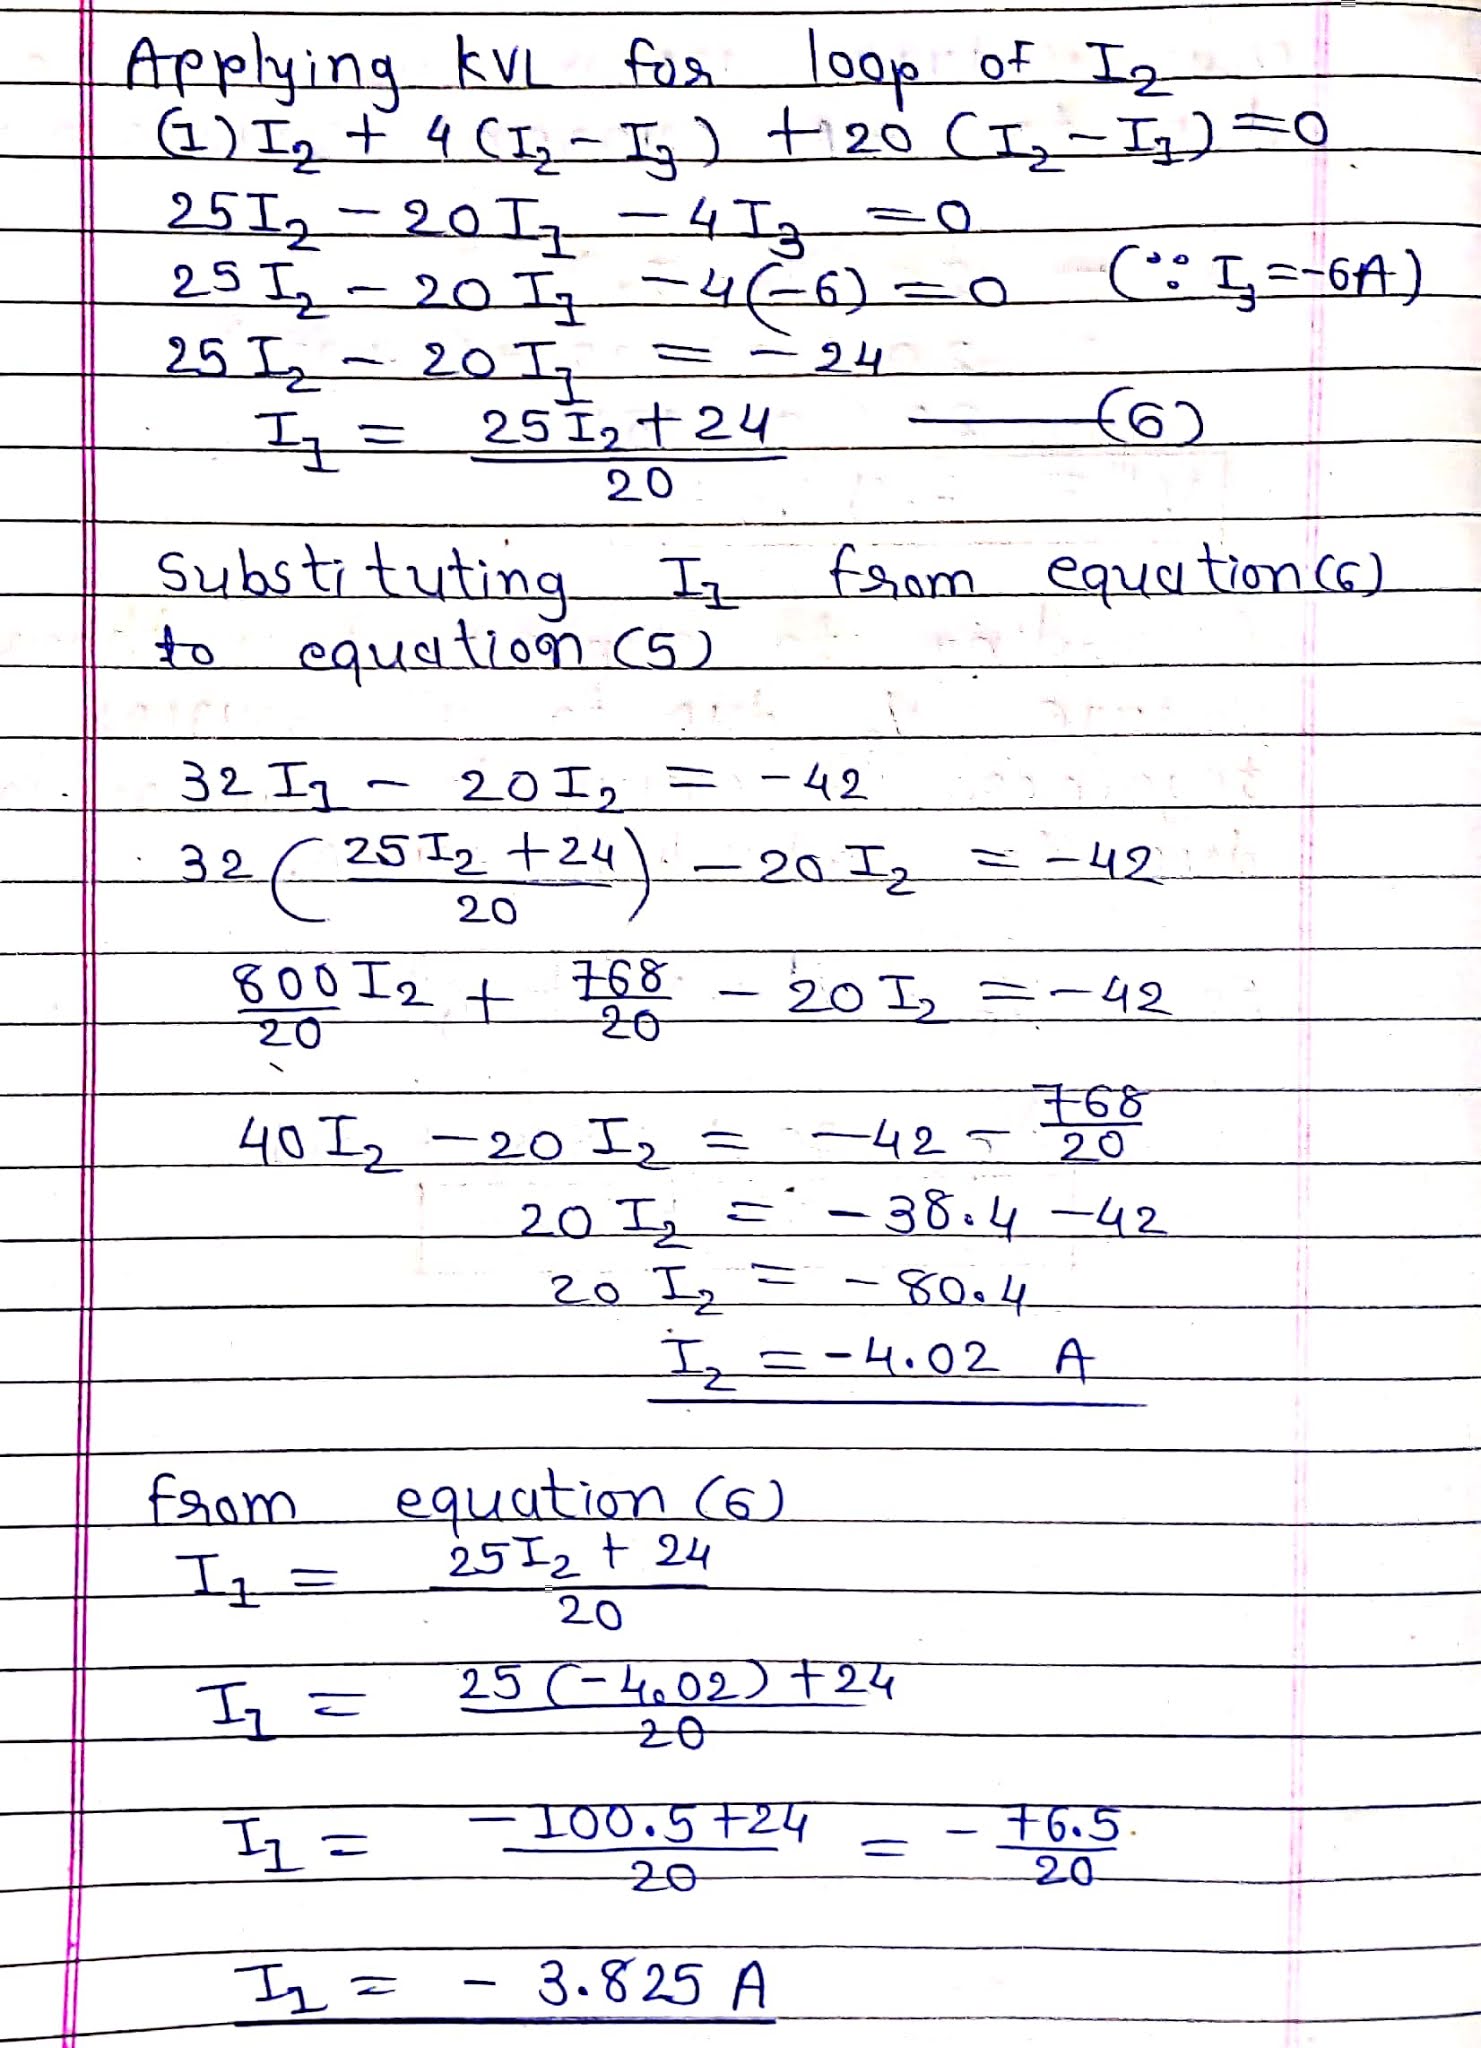 Applying KVL for loop of I₂
(1) I₂ + 4 (I₂ - I₃) + 20 (I₂ - I₁) = 0
25 I₂ - 20 I₁ - 4 I₃ = 0
25 I₂ - 20 I₁ - 4(-6) = 0 (∵ I₃ = -6A)
25 I₂ - 20 I₁ = - 24
I₁ = (25 I₂ + 24)/20 ——(6)
Substituting I₁ from equation (6)
to equation (5)
32 I₁ - 20 I₂ = -42
32 ((25 I₂ + 24)/20) - 20 I₂ = -42
800/20 I₂ + 768/20 - 20 I₂ = -42
40 I₂ - 20 I₂ = -42 - 768/20
20 I₂ = - 38.4 - 42
20 I₂ = - 80.4
I₂ = - 4.02 A
from equation (6)
I₁ = (25 I₂ + 24)/20
I₁ = (25 (-4.02) + 24)/20
I₁ = (-100.5 + 24)/20 = - 76.5/20
I₁ = - 3.825 A